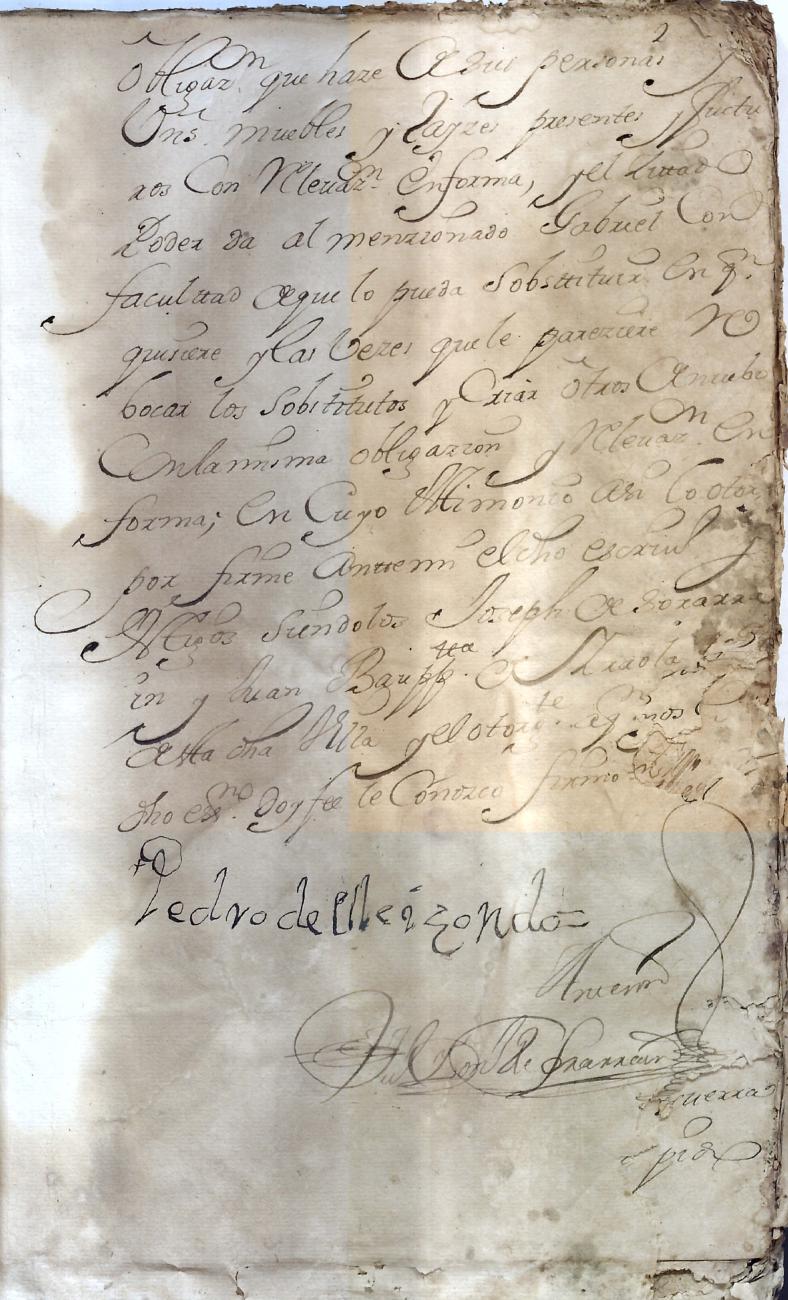 2
obligaz.n que haze de sus personas y
Vns. muebles y Rayzes presentes y futu
ros con Relevaz.n en forma, y el Littado
Poder da al menzionado Gabriel Con
facultad de que lo pueda Sobstituir en q.n
quisiere y las Vezes que le pareziere Re
bocar los Sobstitutos y Criar otros de nuebo
Con la misma obligazion y Relevaz.n en
forma; en Cuyo testimonio assi lo otor
por firme Ante mi el dho escriu y
testigos siendolos Joseph de
in y Juan Baup.tta de
desta dha Villa y el otorg.te
dho ess.no Doy fee le Conozco firmo
Pedro de Eleizondo
Ante mi